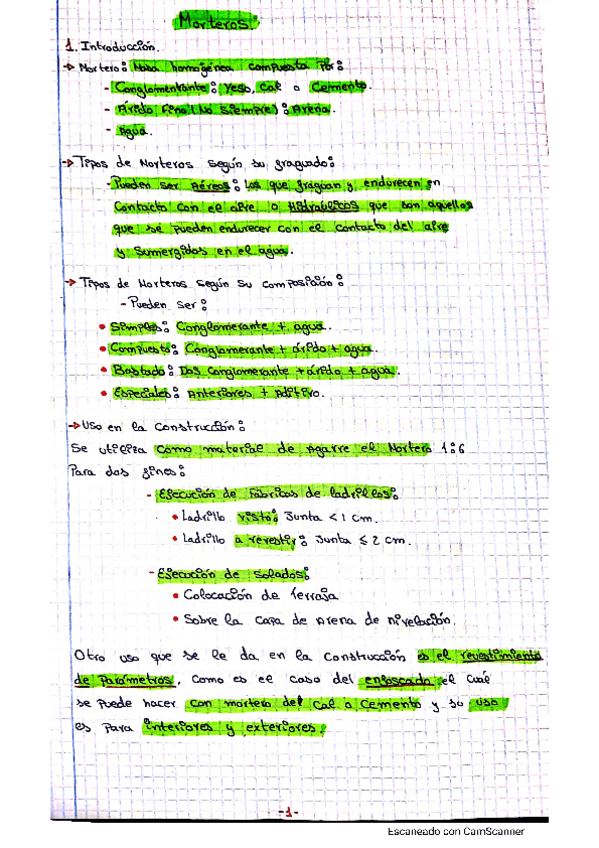 Morteros:
1. Introducción.
→ Mortero: Masa homogénea compuesta por:
- Conglomentante: Yeso, Cal o Cemento.
- Árido fino (No siempre): Arena.
- Agua.
→ Tipos de Morteros según su fraguado:
- Pueden ser Aéreos: Los que fraguan y endurecen en
Contacto con el aire o Hidráulicos que son aquellos
que se pueden endurecer con el contacto del aire
y Sumergidos en el agua.
→ Tipos de Morteros según su composición:
- Pueden ser:
• Simples: Conglomerante + agua.
• Compuesto: Conglomerante + árido + agua.
• Bastado: Dos Conglomerante + árido + agua.
• Especiales: Anteriores + Aditivo.
→ Uso en la Construcción:
Se utiliza como material de Agarre el Mortero 1:6
Para dos fines:
- Ejecución de Fábricas de ladrillos:
• Ladrillo visto: Junta < 1 cm.
• Ladrillo a revestir: Junta ≤ 2 cm.
- Ejecución de Solados:
• Colocación de Terraja
• Sobre la capa de Arena de nivelación.
Otro uso que se le da en la Construcción es el revestimiento
de Parámetros, como es el caso del enfoscado, el cuál
se puede hacer con mortero del Cal o Cemento y su uso
es para interiores y exteriores.
-1-
Escaneado con CamScanner